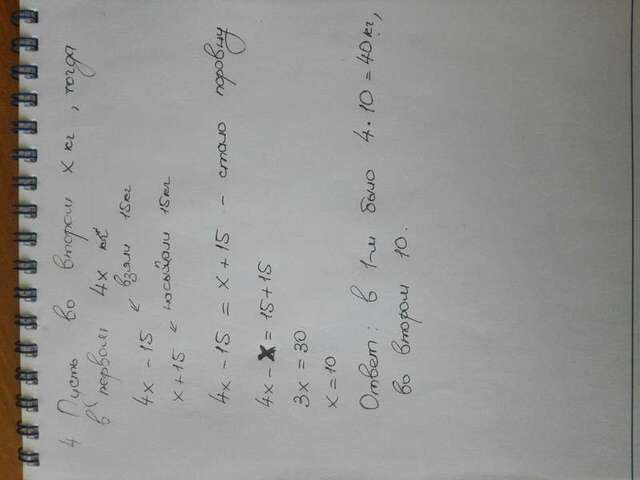 4. Пусть во втором x кг, тогда
в первом 4x кг
4x - 15 ← взяли 15кг
x + 15 ← насыпали 15кг
4x - 15 = x + 15 - стало поровну
4x - x = 15 + 15
3x = 30
x = 10
Ответ: в 1-м было 4 · 10 = 40кг,
во втором 10.